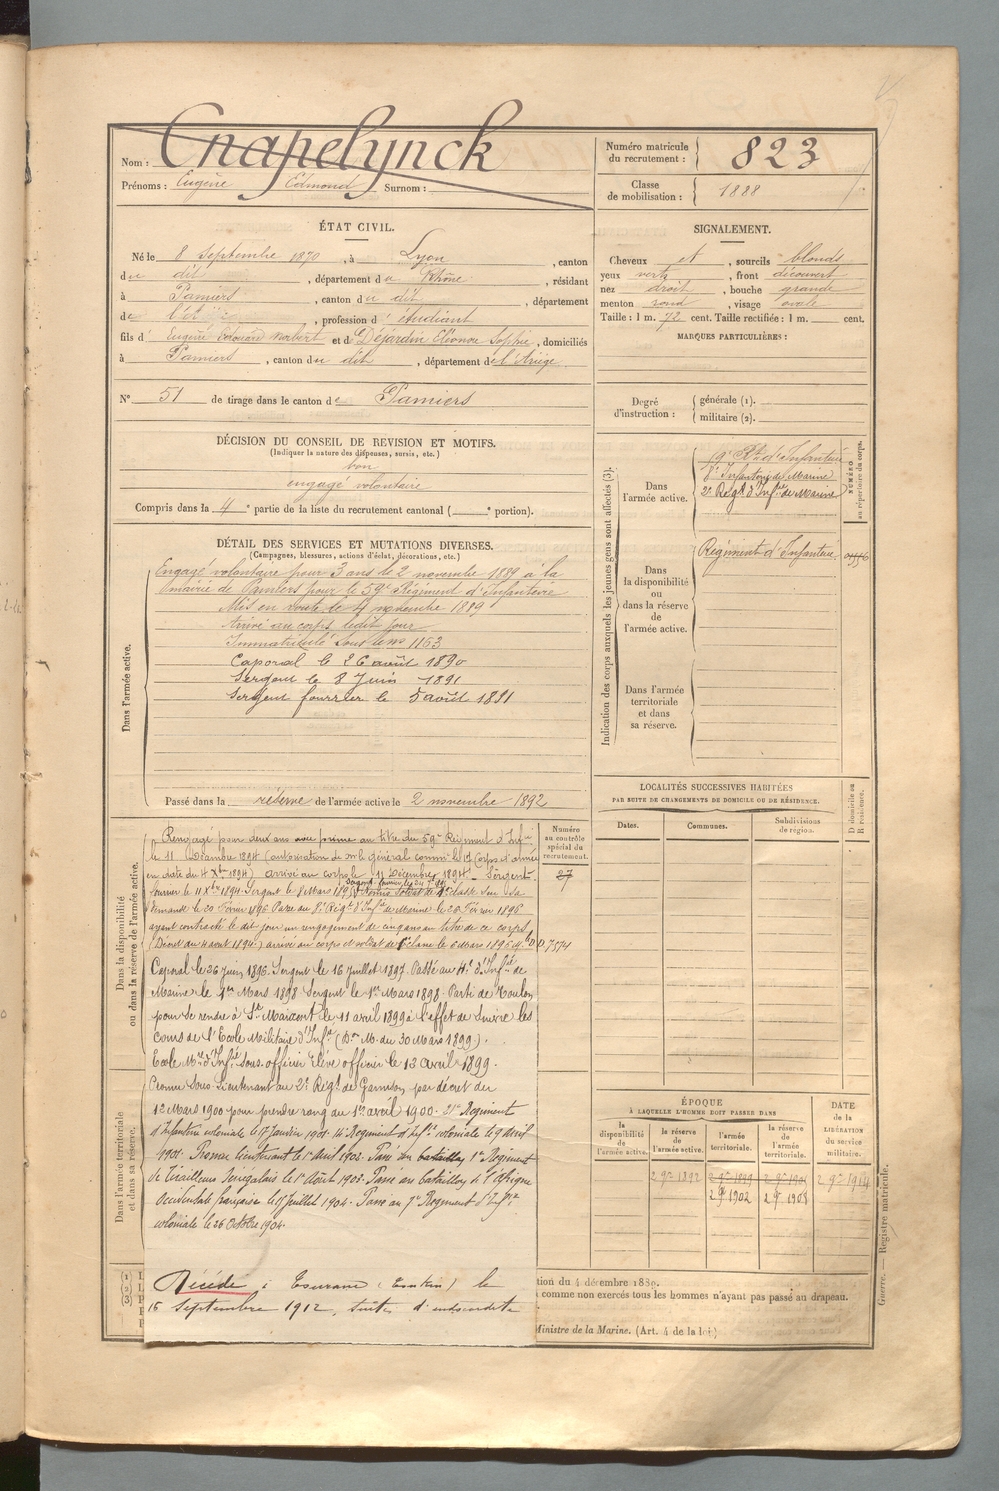 Nom : Cnapelynck
Prénoms : Eugène Edmond Surnom :
Numéro matricule du recrutement : 823
Classe de mobilisation : 1888
ÉTAT CIVIL.
Né le 8 Septembre 1870, à Lyon, canton
du dit, département du Rhône, résidant
à Pamiers, canton du dit, département
de l'ét, profession d'étudiant
fils d'Eugène Edouard Norbert et de Déjardin Eléonore Sophie, domiciliés
à Pamiers, canton du dit, département de l'Ariège.
N° 51 de tirage dans le canton de Pamiers
SIGNALEMENT.
Cheveux et, sourcils blonds
yeux verts, front découvert
nez droit, bouche grande
menton rond, visage ovale
Taille : 1 m. 72 cent. Taille rectifiée : 1 m. cent.
MARQUES PARTICULIÈRES :
Degré d'instruction : générale (1).
militaire (2).
DÉCISION DU CONSEIL DE REVISION ET MOTIFS.
(Indiquer la nature des dispenses, sursis, etc.)
bon
engagé volontaire
Compris dans la 4e partie de la liste du recrutement cantonal ( e portion).
DÉTAIL DES SERVICES ET MUTATIONS DIVERSES.
(Campagnes, blessures, actions d'éclat, décorations, etc.)
Dans l'armée active.
Engagé volontaire pour 3 ans le 2 novembre 1889 à la
mairie de Pamiers pour le 59e Régiment d'Infanterie
Mis en route le 4 novembre 1889
Arrivé au corps ledit jour
Immatriculé sous le no 1163
Caporal le 26 août 1890
Sergent le 8 Juin 1891
Sergent fourrier le 5 août 1891
Passé dans la réserve de l'armée active le 2 novembre 1892
Indication des corps auxquels les jeunes gens sont affectés (3).
Dans l'armée active.
Rt d'Infanterie
8e Infanterie de Marine
2e Régt d'Infie de Marine
NUMÉRO au répertoire du corps.
Dans la disponibilité ou dans la réserve de l'armée active.
Régiment d'Infanterie
Dans l'armée territoriale et dans sa réserve.
Dans la disponibilité ou dans la réserve de l'armée active.
Numéro au contrôle spécial du recrutement.
27
Rengagé pour deux ans avec prime au titre du 59e Régiment d'Infie
le 11 Décembre 1894 (autorisation de Mr le général commt le 17e Corps d'armée
en date du 4 Xbre 1894) arrivé au corps le 11 Décembre 1894. Sergent
fourrier le 11 Xbre 1894. Sergent le 8 Mars 1895. Remis Soldat de 2e classe sur sa
demande le 20 Février 1896. Passé au 8e Régt d'Infie de Marine le 26 Février 1896
ayant contracté le dit jour un engagement de cinq ans au titre de ce corps
(Décret du 4 août 1894) arrivé au corps et soldat de 2e classe le 6 mars 1896 7574
Caporal le 26 juin 1896. Sergent le 16 juillet 1897. Passé au 4e d'Infie de
Marine le 1er Mars 1898 Sergent le 1er Mars 1898. Parti de Toulon
pour se rendre à St Maixent le 11 avril 1899 à l'effet de suivre les
cours de l'Ecole Militaire d'Infie (Don M. du 30 Mars 1899).
Ecole Mre d'Infie sous-officier élève officier le 13 avril 1899.
Dans l'armée territoriale et dans sa réserve.
Promu Sous-Lieutenant au 2e Régt de Garnison par décret du
1er Mars 1900 pour prendre rang au 1er avril 1900. 21e Régiment
d'Infanterie coloniale le 17 Janvier 1901. 14e Régiment d'Infie coloniale le 9 Avril
1901. Promu Lieutenant le 1er Avril 1902. Passé au bataillon 1er Régiment
de Tirailleurs Sénégalais le 1er Août 1903. Passé au bataillon de l'Afrique
Occidentale française le 1er Juillet 1904. Passé au 7e Régiment d'Infie
coloniale le 26 Octobre 1904.
Décédé à Tourane (Tonkin) le
15 Septembre 1912, suite d'endocardite
LOCALITÉS SUCCESSIVES HABITÉES
PAR SUITE DE CHANGEMENTS DE DOMICILE OU DE RÉSIDENCE.
Dates. Communes. Subdivisions de région. D domicile ou R résidence.
ÉPOQUE
À LAQUELLE L'HOMME DOIT PASSER DANS
la disponibilité de l'armée active. la réserve de l'armée active. l'armée territoriale. la réserve de l'armée territoriale.
DATE de la LIBÉRATION du service militaire.
2 9bre 1892 2 9bre 1899 2 9bre 1914
2 9bre 1902 2 9bre 1908
(1)
(2)
(3)
tion du 4 décembre 1889.
comme non exercés tous les hommes n'ayant pas passé au drapeau.
Ministre de la Marine. (Art. 4 de la loi)
Guerre. — Registre matricule.